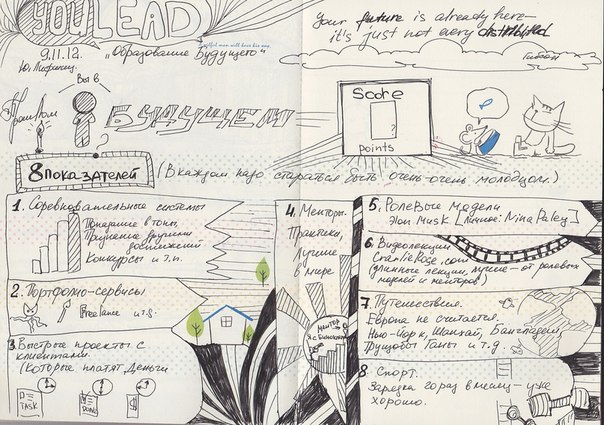 YOU LEAD
9.11.12. „Образование Будущего"
your future is already here—
it's just not every distributed
Вы в
БУДУЩЕМ
Score
?
points
8 показателей
(В каждом надо стараться быть очень-очень молодцом.)
1. Соревновательные системы
Попадание в топы,
достижений
Конкурсы и т.п.
2. Портфолио-сервисы
Freelance и т.д.
3. Быстрые проекты с
клиентами.
(Которые платят деньги
TASK
DONE
$
4. Менторы.
Практики,
Лучшие
в мире
Ментор
5. Ролевые модели
Элон Musk [Личное: Nina Paley]
6. Видеолекции
CharlieRose.com
(длинные лекции, лучше — от ролевых
моделей и менторов)
7. Путешествия.
Европа не считается.
Нью-Йорк, Шанхай, Бангладеш,
Трущобы Ганы и т.д.
8. Спорт.
Зарядка 2 раза в месяц — уже
хорошо.